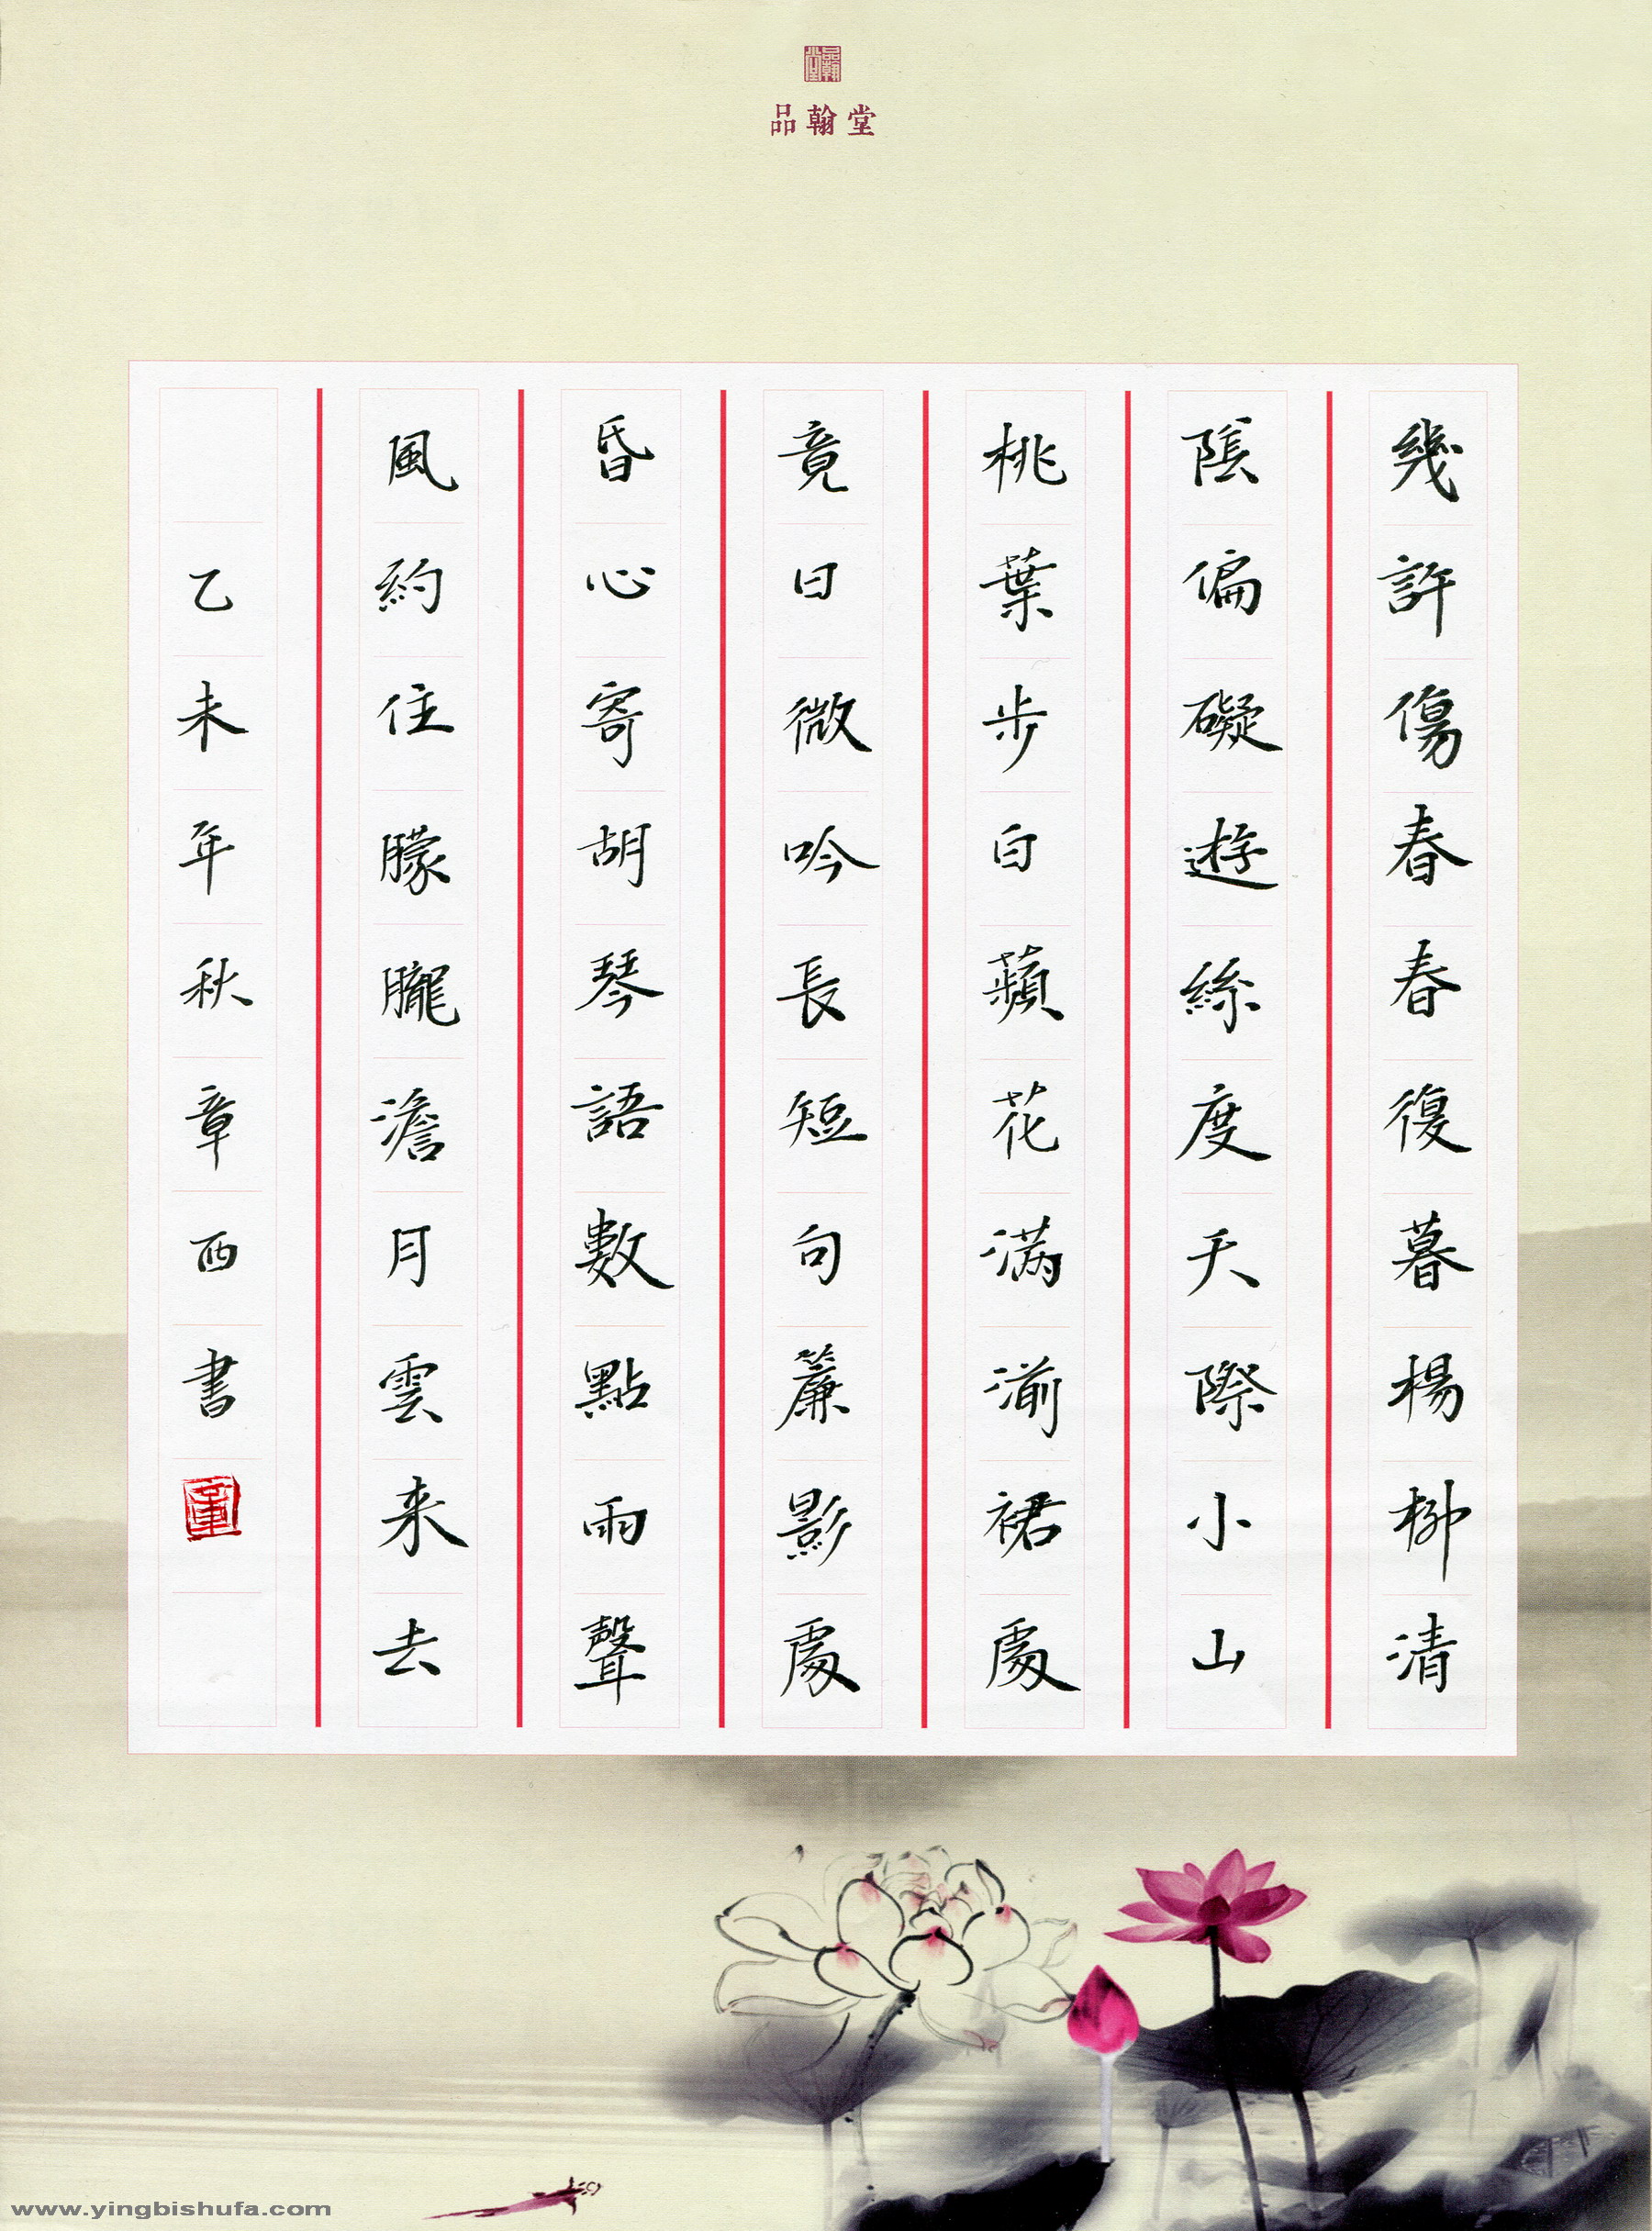 品翰堂
幾許傷春春復暮楊柳清
陰偏礙遊絲度天際小山
桃葉步白蘋花滿湔裙處
竟日微吟長短句簾影處
昏心寄胡琴語數點雨聲
風約住朦朧澹月雲来去
乙未年秋章西書
www.yingbishufa.com